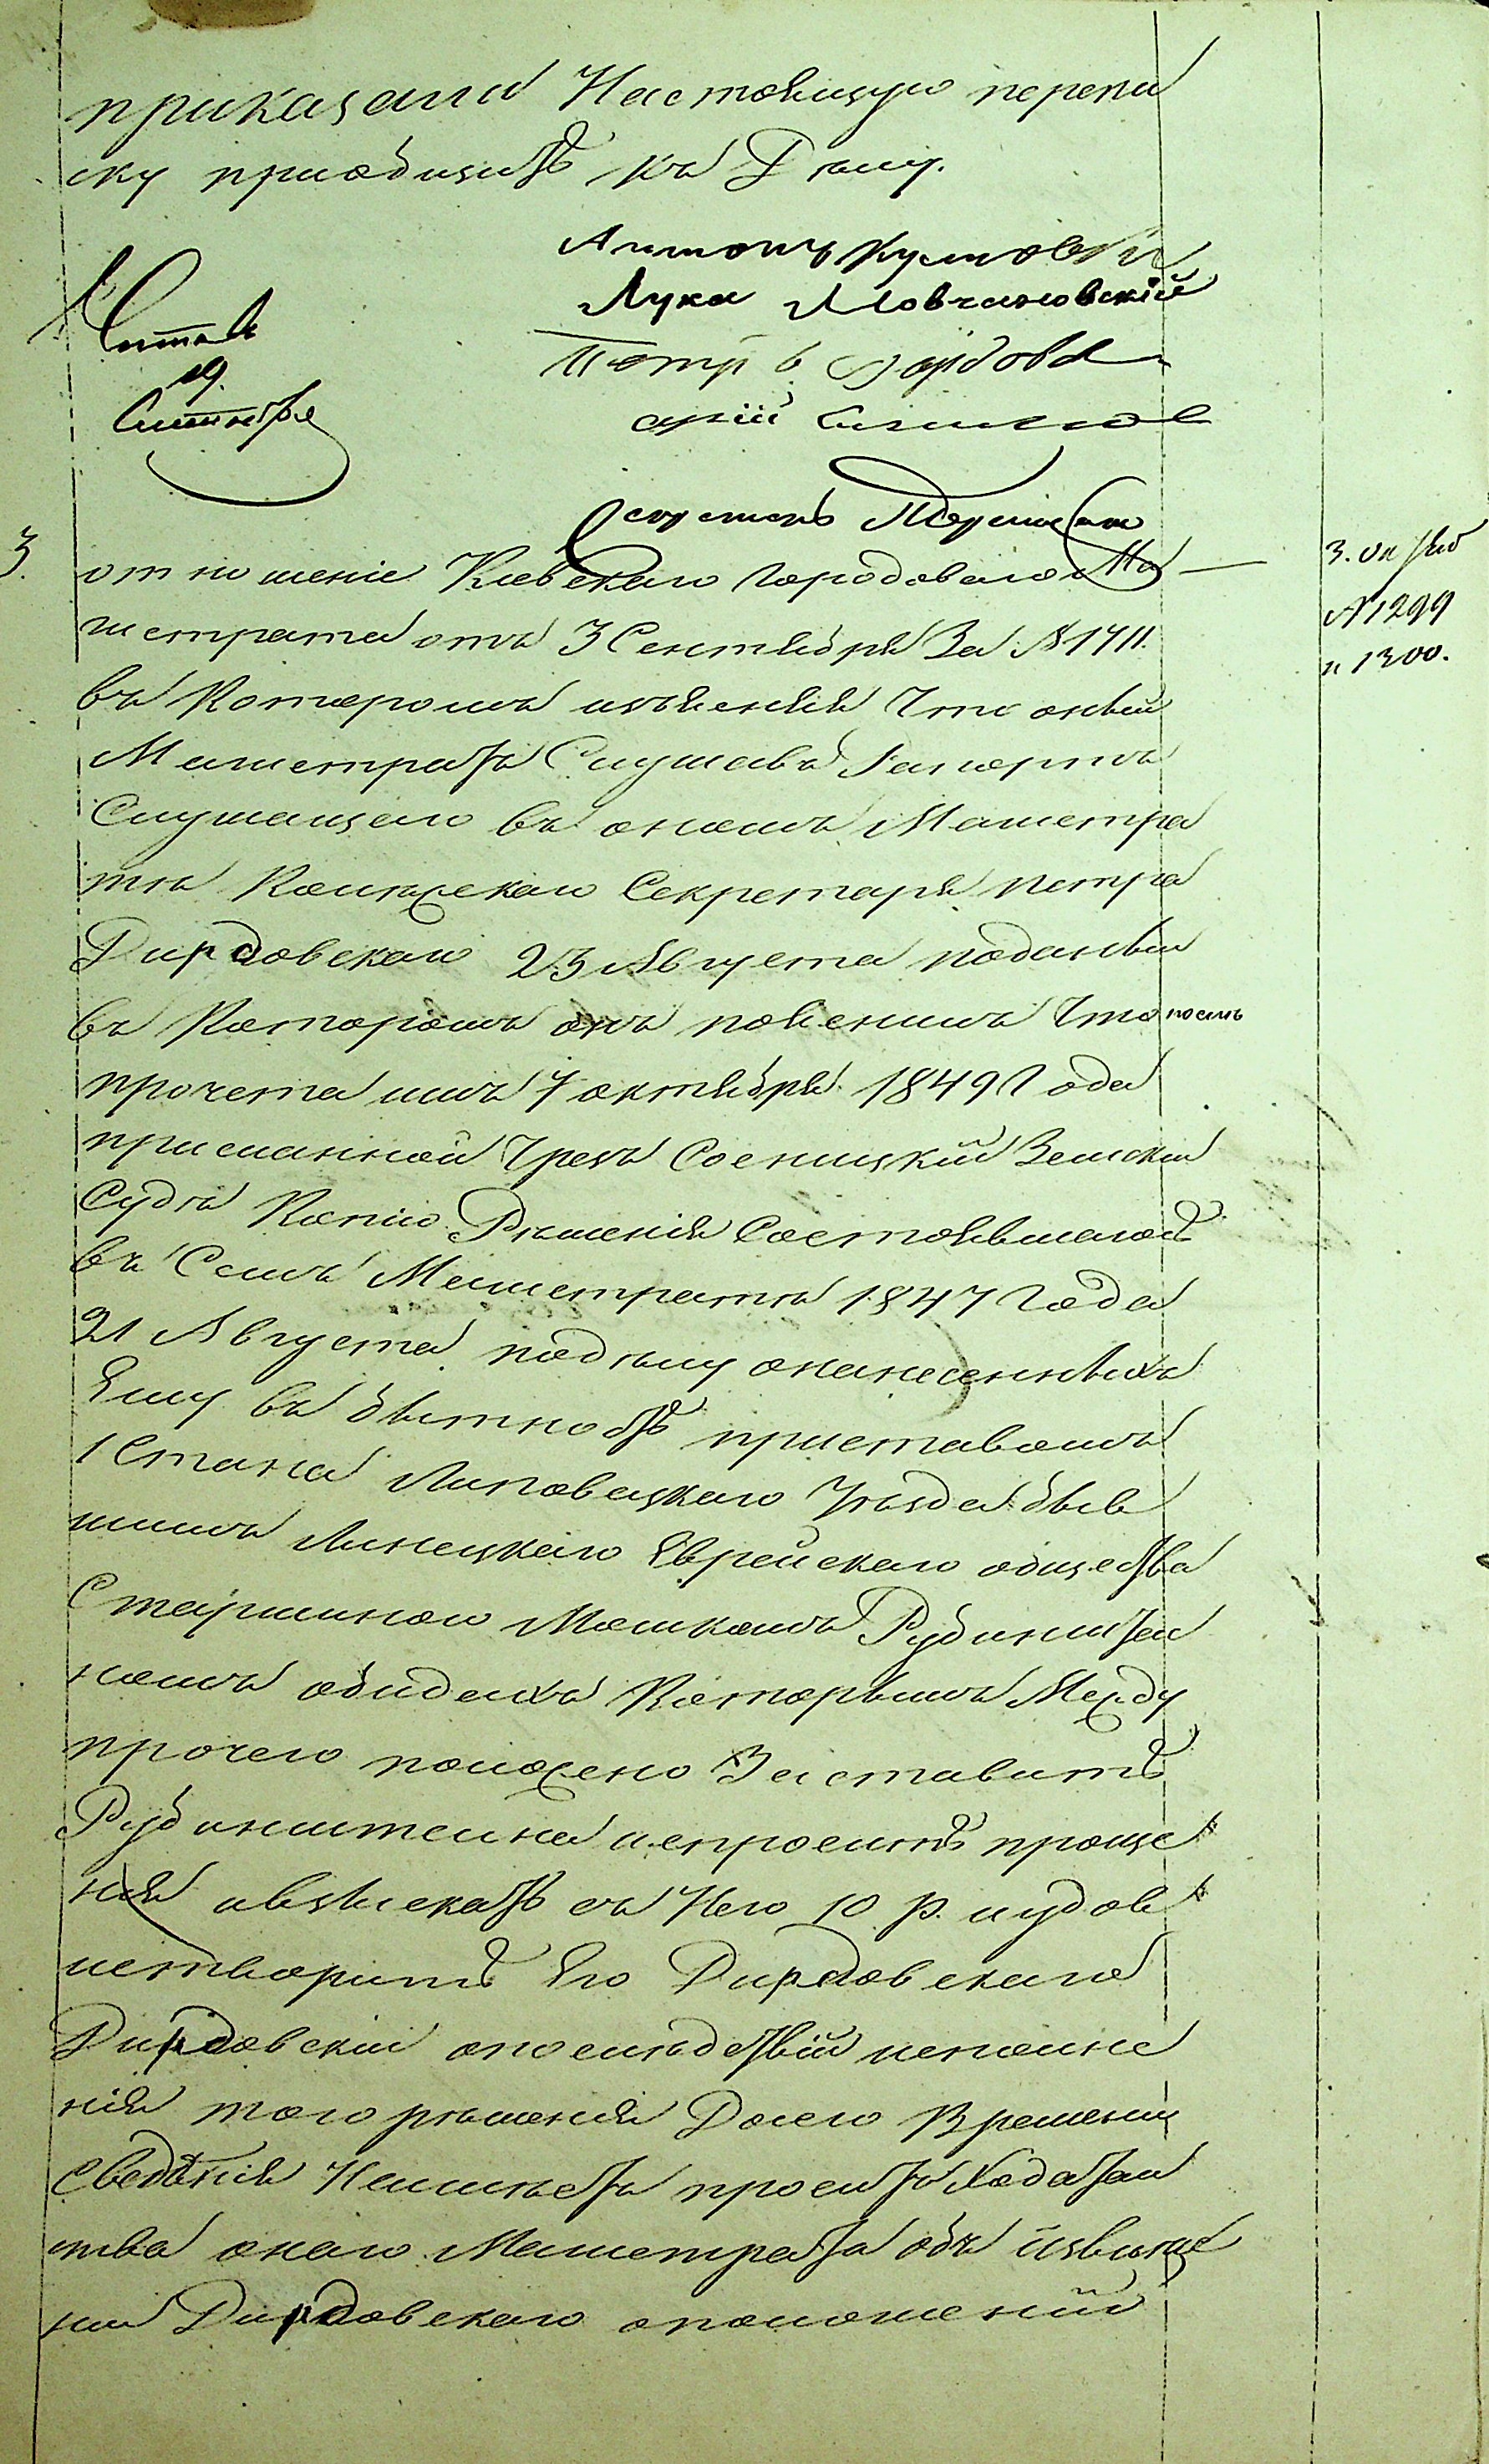 приказали Настоящую перепи
ску приобщить къ Дѣлу.
Антонъ
Лука Мовчановскій
Петръ
Читалъ
19
Сентября
Секретарь
3.
отношеніе Кіевскаго Городоваго Ма
3. Октяб
№ 1299
и 1300.
гистрата отъ 3 Сентября За № 1711.
въ Которомъ изъясняя Что оный
Магистратъ Слушавъ Рапортъ
Служащего въ ономъ Магистра
тѣ Колежскаго Секретаря петра
Дирдовскаго 23 Августа поданый
въ Которомъ онъ пояснилъ Что посль
прочета имъ 7 октября 1849 Года
присланной Чрезъ Сосницкій Земскій
Судъ Копію Рѣшенія Состоявшагось
въ Семъ Магистратѣ 1847 Года
21 Августа подѣлу онанесенныхъ
Ему въ бытность приставомъ
1 Стана Липовецкаго Уѣзда быв
шимъ Линецкаго Еврейскаго общества
Старшиною Мошкомъ Рубинштей
номъ обидахъ Которымъ Между
прочего положено Заставить
Рубинштейна испросить проще
нія ивзыскать съ Него 10 р. иудов
летворить Его Дирдовскаго
Дирдовскій опослѣдствій исполне
нія того рѣшенія Досего Времени
Сведѣнія Неимѣетъ проситъ Ходатай
ства онаго Магистрата объ извѣще
ніи Дирдовскаго оположеніи